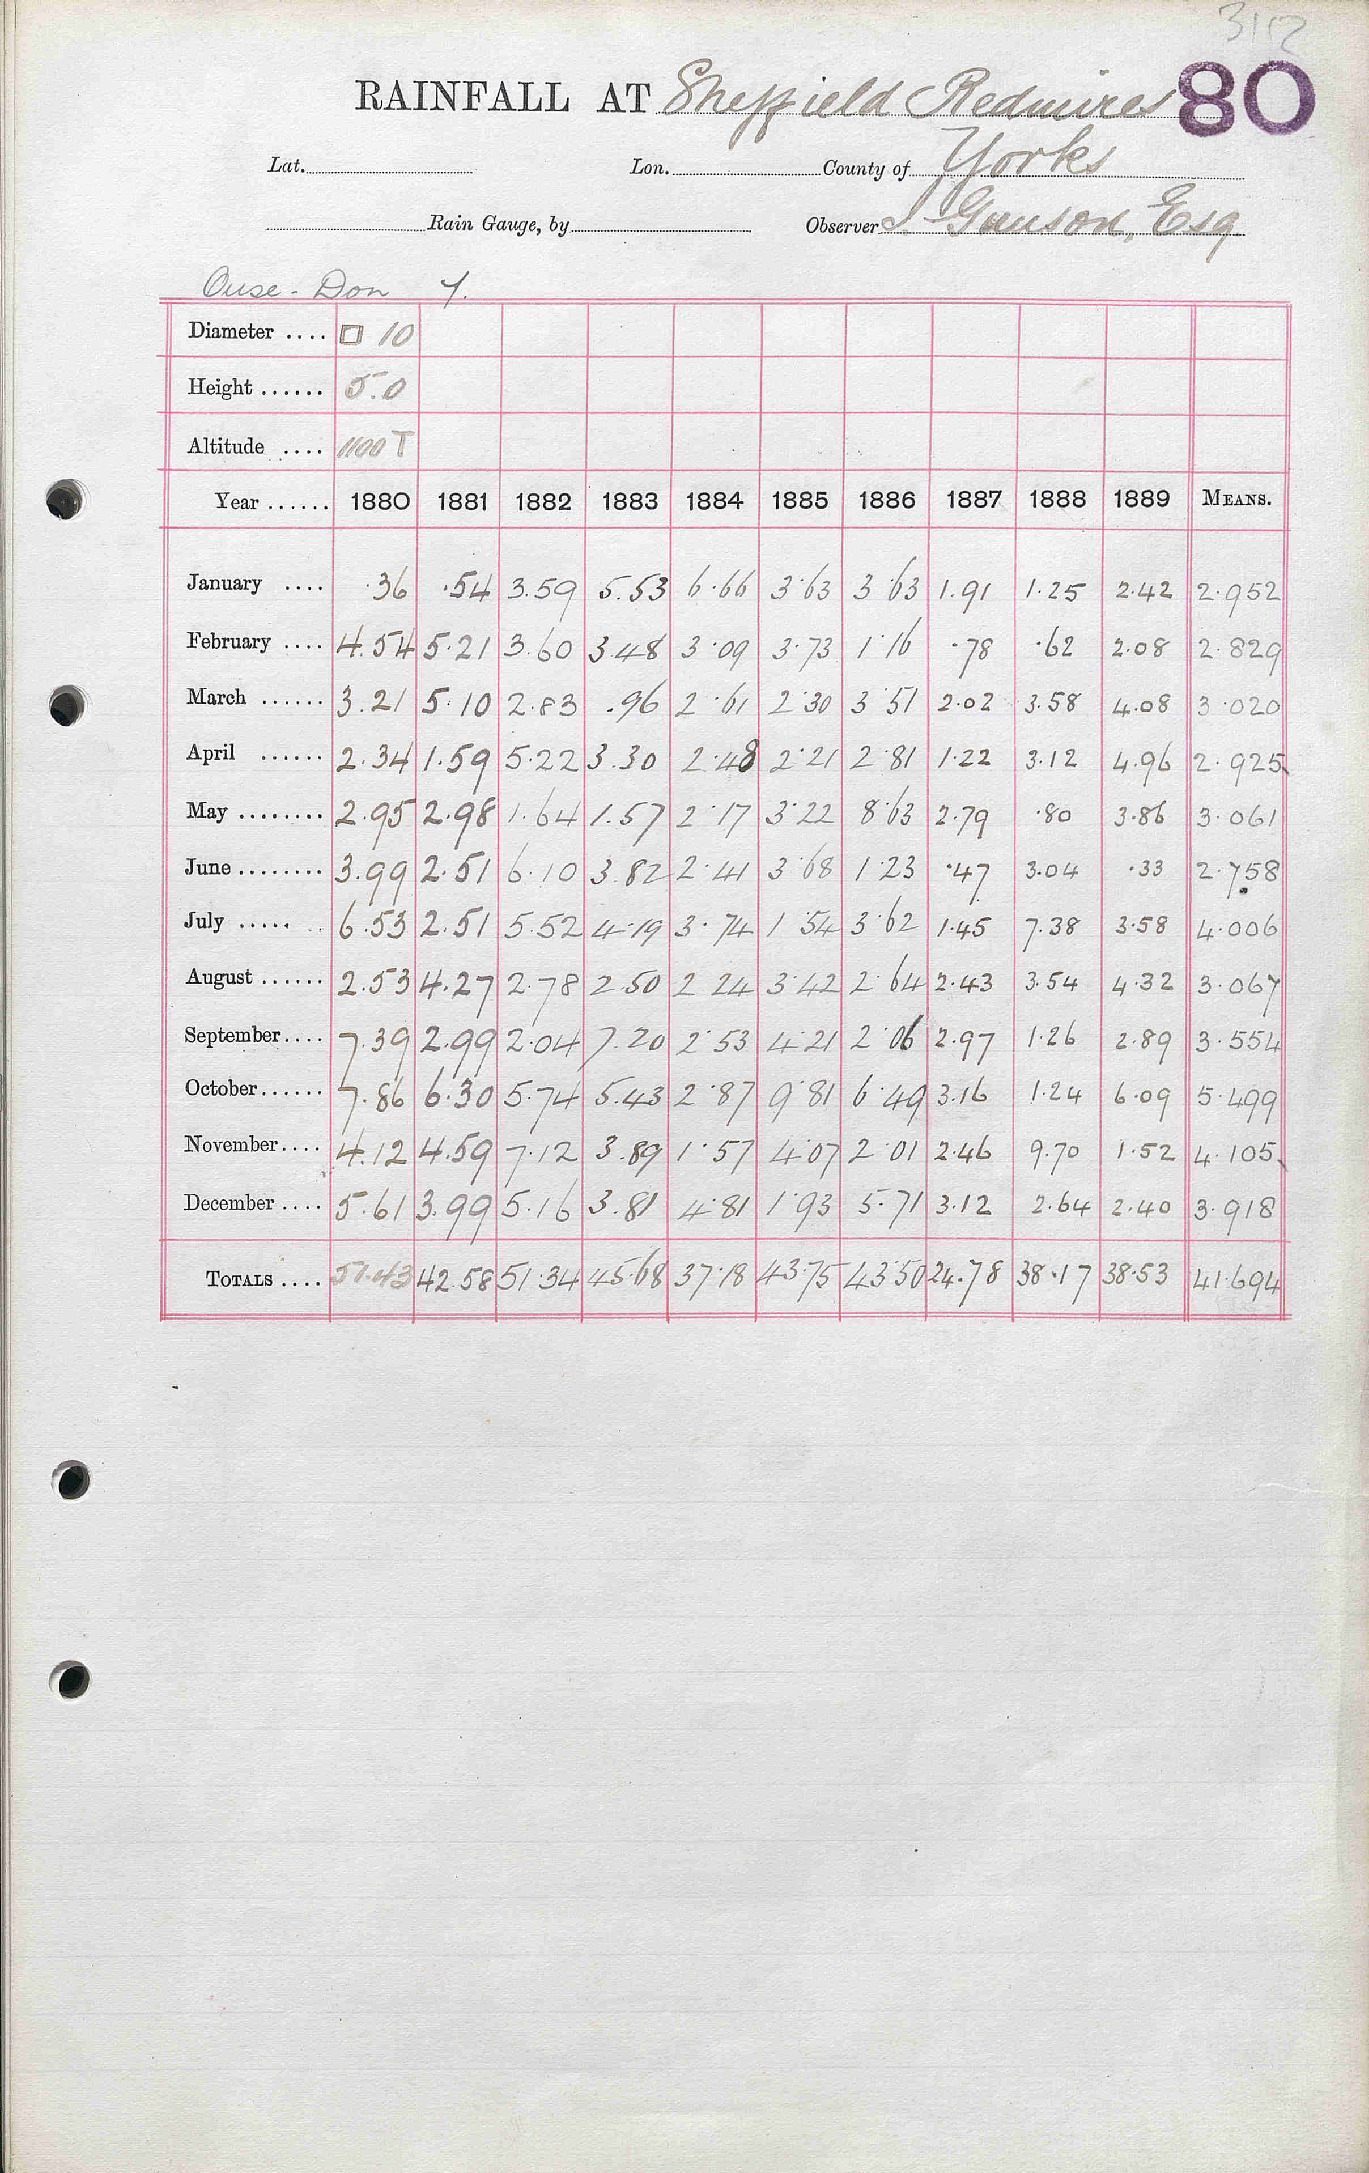 3112
RAINFALL AT Sheffield Redmires 80
Lat. Lon. County of Yorks
Rain Gauge, by Observer Gunson, Esq
Ouse - Don
Diameter .... □ 10
Height ...... 5.0
Altitude .... 1100 T
Year ...... 1880 1881 1882 1883 1884 1885 1886 1887 1888 1889 MEANS.
January .... .36 .54 3.59 5.53 6.66 3.63 3.63 1.91 1.25 2.42 2.952
February .... 4.54 5.21 3.60 3.48 3.09 3.73 1.16 .78 .62 2.08 2.829
March ...... 3.21 5.10 2.83 .96 2.61 2.30 3.51 2.02 3.58 4.08 3.020
April ...... 2.34 1.59 5.22 3.30 2.48 2.21 2.81 1.22 3.12 4.96 2.925
May ........ 2.95 2.98 1.64 1.57 2.17 3.22 8.63 2.79 .80 3.86 3.061
June ........ 3.99 2.51 6.10 3.82 2.41 3.68 1.23 .47 3.04 .33 2.758
July ..... 6.53 2.51 5.52 4.19 3.74 1.54 3.62 1.45 7.38 3.58 4.006
August ...... 2.53 4.27 2.78 2.50 2.24 3.42 2.64 2.43 3.54 4.32 3.067
September .... 7.39 2.99 2.04 7.20 2.53 4.21 2.06 2.97 1.26 2.89 3.554
October ...... 7.86 6.30 5.74 5.43 2.87 9.81 6.49 3.16 1.24 6.09 5.499
November .... 4.12 4.59 7.12 3.89 1.57 4.07 2.01 2.46 9.70 1.52 4.105
December .... 5.61 3.99 5.16 3.81 4.81 1.93 5.71 3.12 2.64 2.40 3.918
TOTALS .... 51.43 42.58 51.34 45.68 37.18 43.75 43.50 24.78 38.17 38.53 41.694